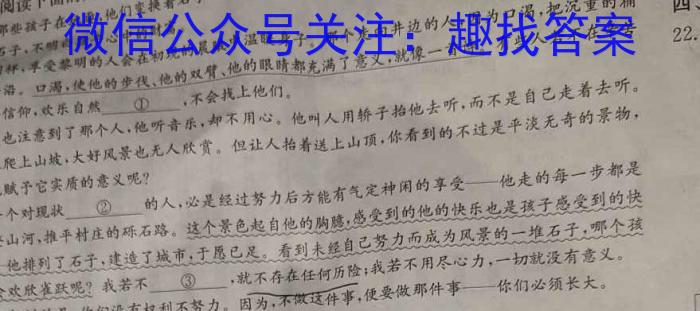 阅读下面的
那些孩子在
他们变换着石子
四、
石子，不明
微信公众号关注：趣找答案
22.
享受黎明的人会在初
走向井边的人，因为口渴，把沉重的桶
浴。口渴，使他的步伐、他的双臂、他的眼睛都充满了意义，就像一
信仰，欢乐自然 ① ，不会找上他们。
也注意到了那个人，他听音乐，却不用心。他叫人用轿子抬他去听，而不是自己走着去听。
爬上山坡，大好风景也无人欣赏。但让人抬着送上山顶，你看到的不过是平淡无奇的景物，
赋予它实质的意义呢？
个对现状 ② 的人，必是经过努力后方能有气定神闲的享受——他走的每一步都是
山河，推平村庄的砾石路。这个景色起自他的胸臆，感受到的他的快乐也是孩子感受到的快
他排列了石子，建造了城市，于愿已足。看到未经自己努力而成为风景的一堆石子，哪个孩
会欢欣雀跃呢？我若不 ③ ，就不存在任何历险；我若不用尽心力，一切就没有意义。
你们没有权利不努力。因为，不做这件事，便要做那件事——你们必须长大。